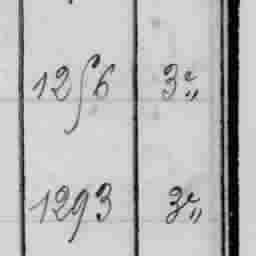 1256 3e„
1293 3e„